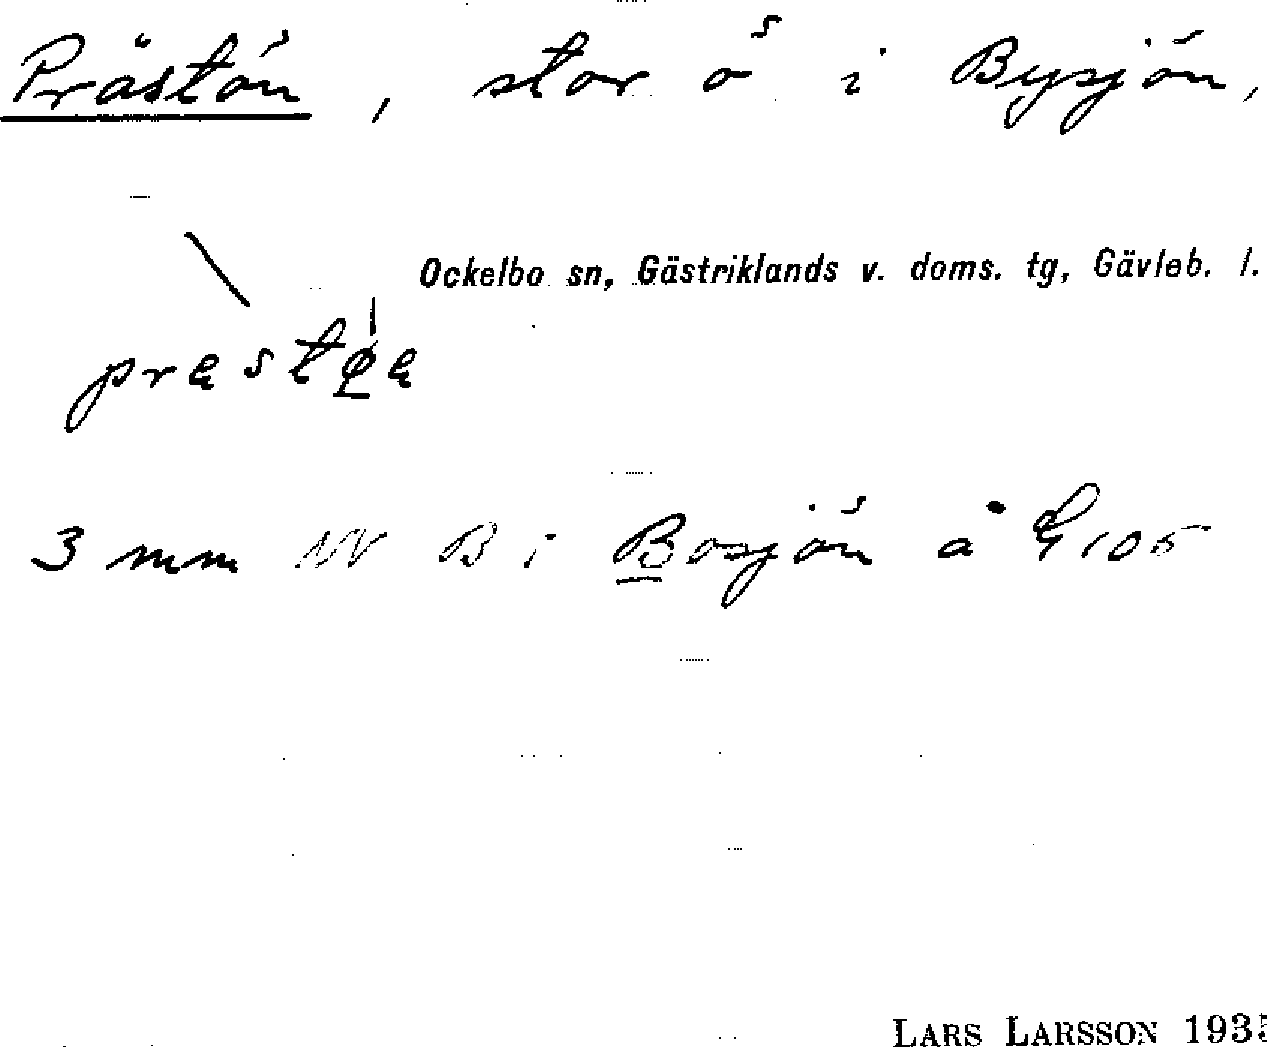 Prästön, stor ö i Bysjön,
Ockelbo sn, Gästriklands v. doms. tg, Gävleb. l.
3 mm NV B i Bosjön å G 105
LARS LARSSON 1935